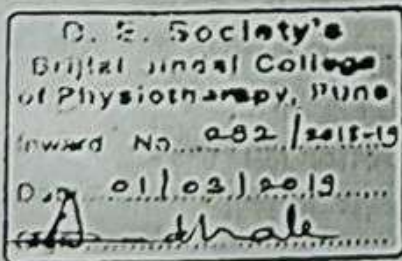 D. E. Society's
Brijlal Jindal College
of Physiotherapy, Pune
Inward No. 082/2018-19
Date 01/03/2019